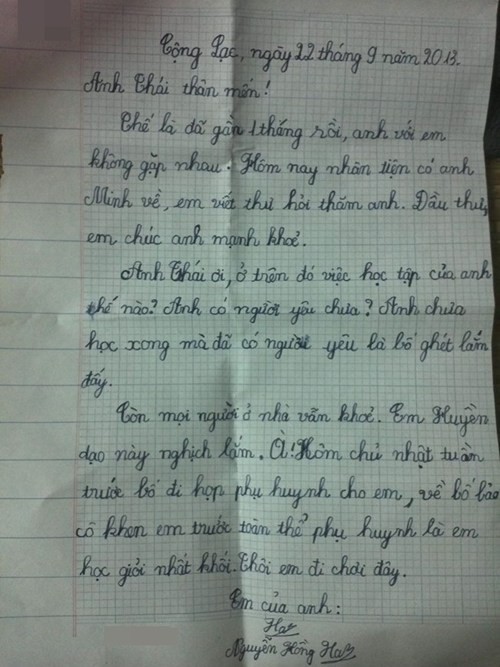 Cộng Lạc, ngày 22 tháng 9 năm 2013.
Anh Thái thân mến!
Thế là đã gần 1 tháng rồi, anh với em
không gặp nhau. Hôm nay nhân tiện có anh
Minh về, em viết thư hỏi thăm anh. Đầu thư,
em chúc anh mạnh khoẻ.
Anh Thái ơi, ở trên đó việc học tập của anh
thế nào? Anh có người yêu chưa? Anh chưa
học xong mà đã có người yêu là bố ghét lắm
đấy.
Còn mọi người ở nhà vẫn khoẻ. Em Huyền
dạo này nghịch lắm. À! Hôm chủ nhật tuần
trước bố đi họp phụ huynh cho em, về bố bảo
cô khen em trước toàn thể phụ huynh là em
học giỏi nhất khối. Thôi em đi chơi đây.
Em của anh:
Hà
Nguyễn Hồng Hà